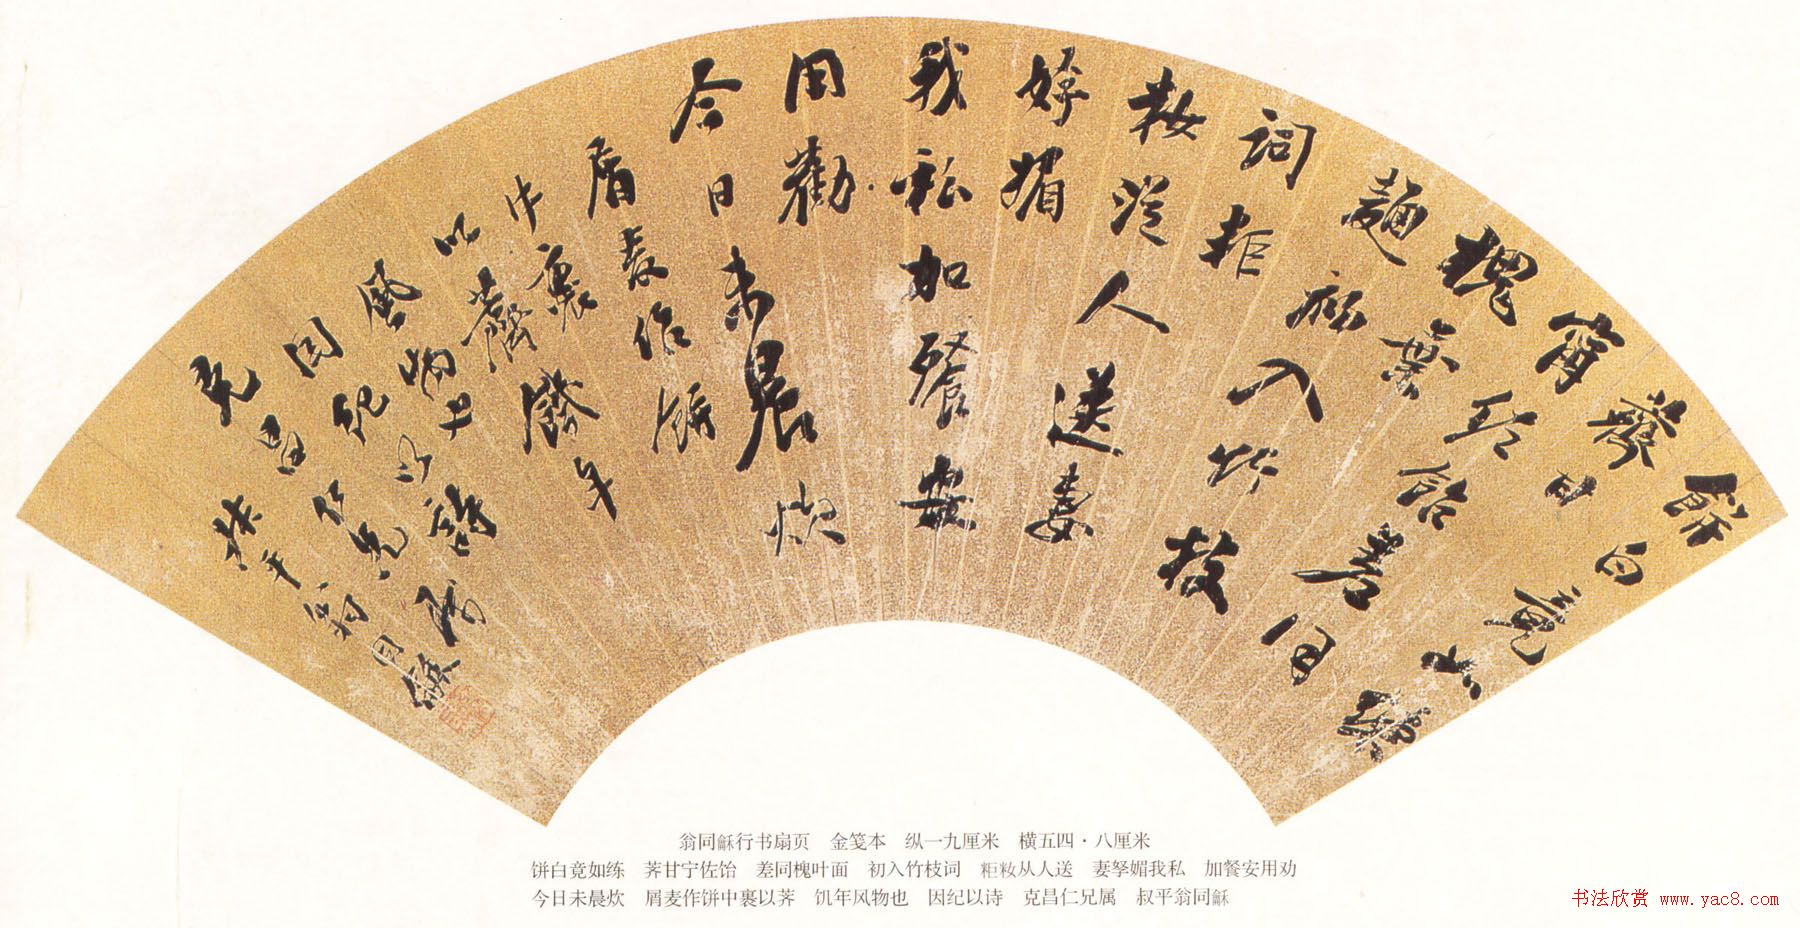 餅白竟如練
薺甘
甯佐飴差同
槐葉
麵初入竹枝
詞粔
籹從人送妻
孥媚
我私加餐安
用勸
今日未晨炊
屑麦作餅
中裹
以薺饑年
風物也
因紀以詩
克昌仁兄属
叔平翁同龢
翁同龢行书扇页　金笺本　纵一九厘米　横五四·八厘米
饼白竟如练　荠甘宁佐饴　差同槐叶面　初入竹枝词　粔籹从人送　妻孥媚我私　加餐安用劝
今日未晨炊　屑麦作饼中裹以荠　饥年风物也　因纪以诗　克昌仁兄属　叔平翁同龢
书法欣赏 www.yac8.com